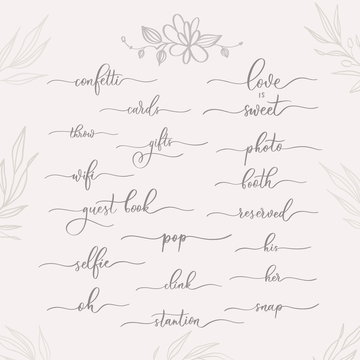 confetti
love
is
sweet
cards
throw
gifts
photo
wifi
booth
guest book
reserved
pop
his
selfie
clink
her
oh
snap
stantion